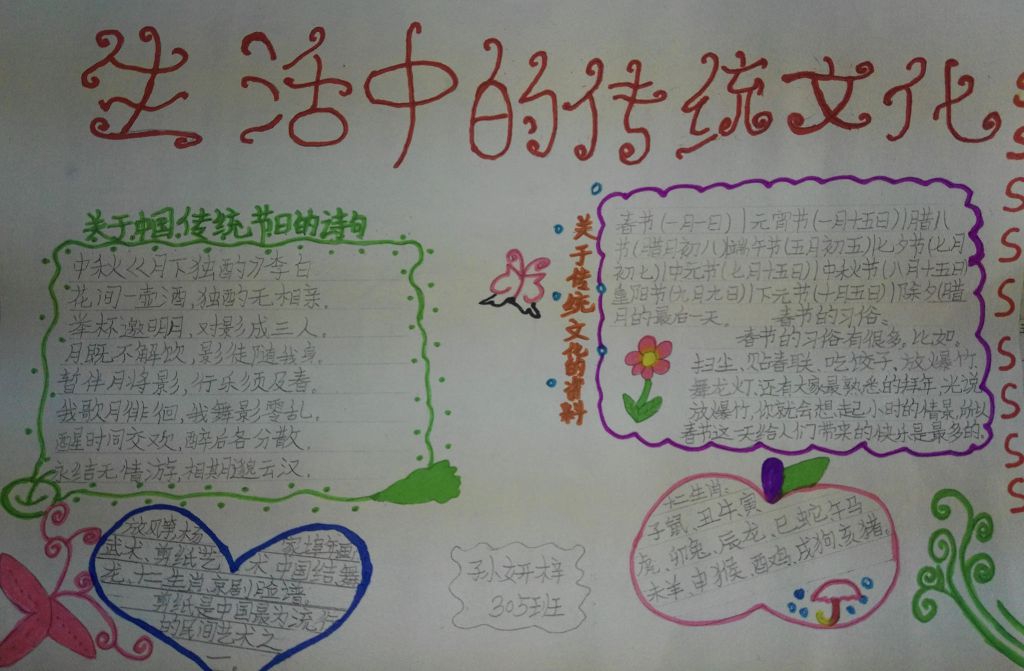 生活中的传统文化
关于中国传统节日的诗句
中秋《月下独酌》李白
花间一壶酒,独酌无相亲。
举杯邀明月,对影成三人。
月既不解饮,影徒随我身。
暂伴月将影,行乐须及春。
我歌月徘徊,我舞影零乱。
醒时同交欢,醉后各分散。
永结无情游,相期邈云汉。
关于传统文化的资料
春节(一月一日)|元宵节(一月十五日)|腊八
节(腊月初八)|端午节(五月初五)|七夕节(七月
初七)|中元节(七月十五日)|中秋节(八月十五日)
重阳节(九月九日)|下元节(十月五日)|除夕(腊
月的最后一天。 春节的习俗。
春节的习俗有很多。比如。
扫尘、贴春联、吃饺子、放爆竹、
舞龙灯,还有大家最熟悉的拜年,光说
放爆竹,你就会想起小时的情景,所以
春节这一天给人们带来的快乐是最多的。
武术、剪纸艺术、中国结、舞
龙、十二生肖、京剧脸谱。
剪纸是中国最为流行
的民间艺术之
一。
孙妍梓
305班
十二生肖:
子鼠、丑牛、寅
虎、卯兔、辰龙、巳蛇、午马
未羊、申猴、酉鸡、戌狗、亥猪。